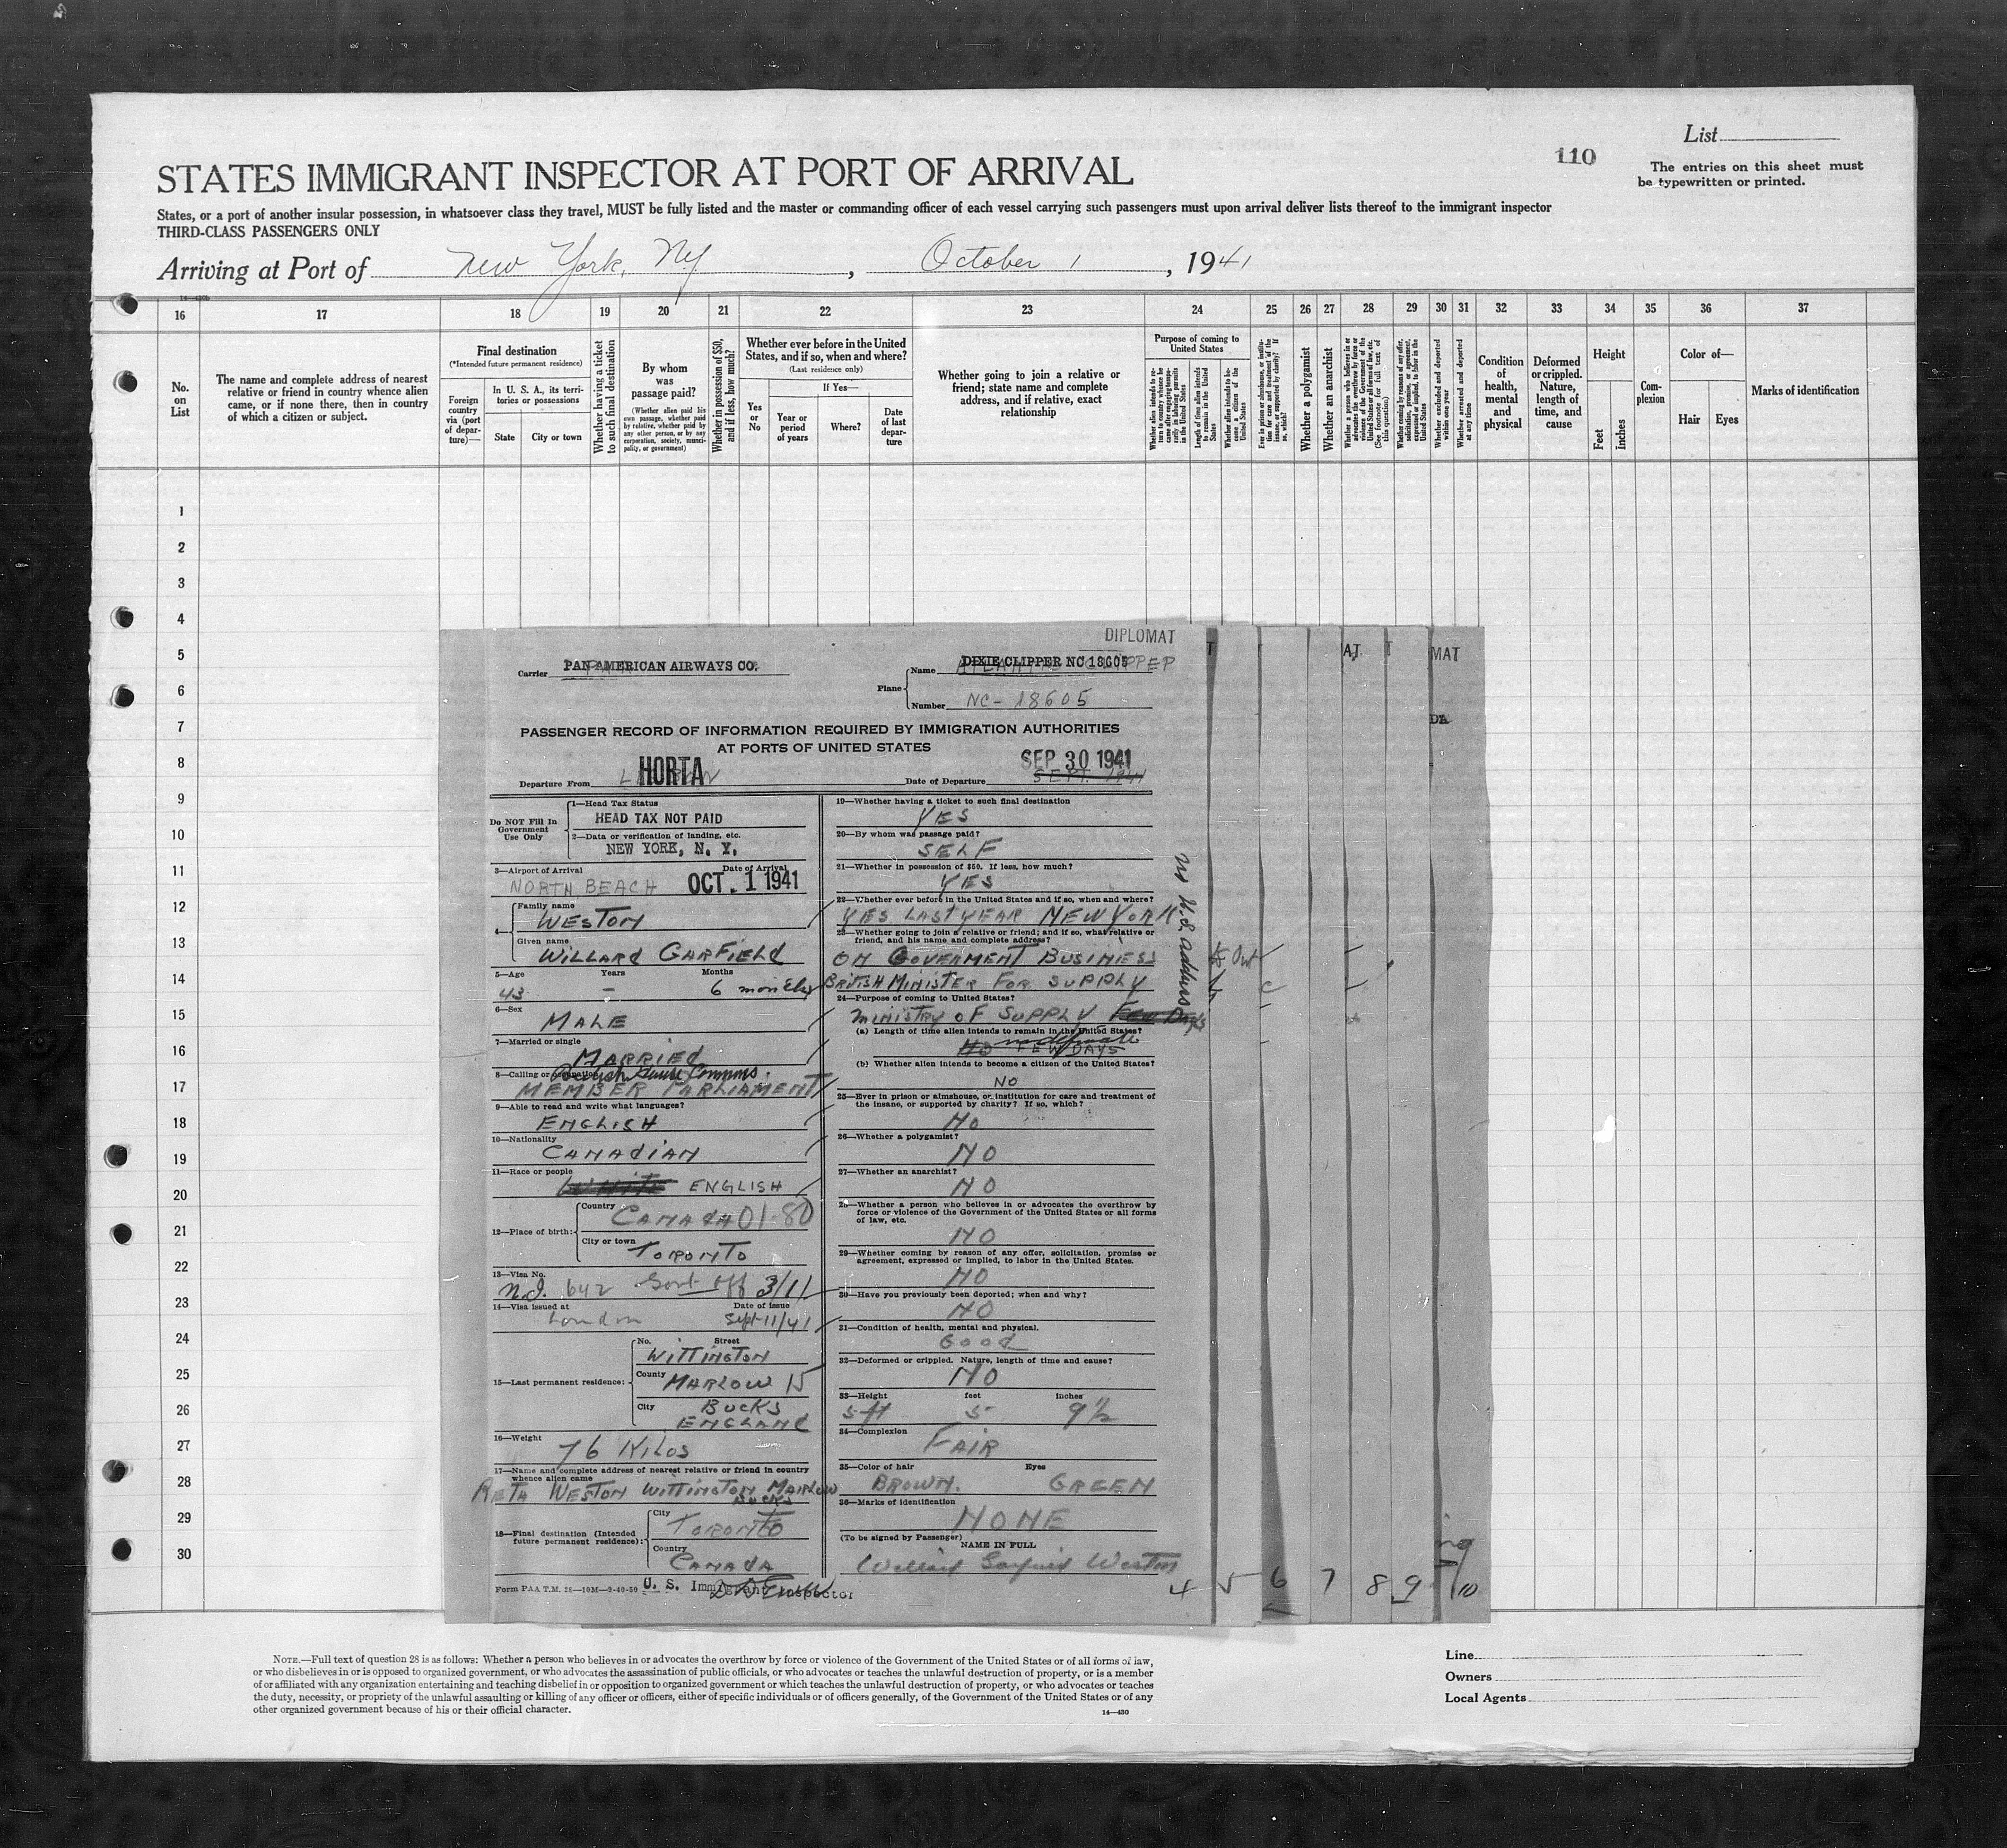 List
110
The entries on this sheet must
be typewritten or printed.
STATES IMMIGRANT INSPECTOR AT PORT OF ARRIVAL
States, or a port of another insular possession, in whatsoever class they travel, MUST be fully listed and the master or commanding officer of each vessel carrying such passengers must upon arrival deliver lists thereof to the immigrant inspector
THIRD-CLASS PASSENGERS ONLY
Arriving at Port of New York, NY, October 1, 1941
16 17 18 19 20 21 22 23 24 25 26 27 28 29 30 31 32 33 34 35 36 37
No. on List
The name and complete address of nearest relative or friend in country whence alien came, or if none there, then in country of which a citizen or subject.
Final destination
(*Intended future permanent residence)
Foreign country via (port of departure)—
In U. S. A., its territories or possessions
State
City or town
Whether having a ticket to such final destination
By whom was passage paid?
(Whether alien paid his own passage, whether paid by relative, whether paid by any other person, or by any corporation, society, municipality, or government)
Whether in possession of $50, and if less, how much?
Whether ever before in the United States, and if so, when and where?
(Last residence only)
Yes or No
If Yes—
Year or period of years
Where?
Date of last departure
Whether going to join a relative or friend; state name and complete address, and if relative, exact relationship
Purpose of coming to United States
Whether alien intends to return to country whence he came after engaging temporarily in laboring pursuits in the United States
Length of time alien intends to remain in the United States
Whether alien intends to become a citizen of the United States
Ever in prison or almshouse, or institution for care and treatment of the insane, or supported by charity? If so, which?
Whether a polygamist
Whether an anarchist
Whether a person who believes in or advocates the overthrow by force or violence of the Government of the United States or all forms of law, etc. (See footnote for full text of this question)
Whether coming by reason of any offer, solicitation, promise, or agreement, expressed or implied, to labor in the United States
Whether excluded and deported within one year
Whether arrested and deported at any time
Condition of health, mental and physical
Deformed or crippled. Nature, length of time, and cause
Height
Feet
Inches
Complexion
Color of—
Hair
Eyes
Marks of identification
1
2
3
4
5
6
7
8
9
10
11
12
13
14
15
16
17
18
19
20
21
22
23
24
25
26
27
28
29
30
DIPLOMAT
Carrier PAN AMERICAN AIRWAYS CO.
Plane Name DIXIE CLIPPER NC 18605
Number NC-18605
PASSENGER RECORD OF INFORMATION REQUIRED BY IMMIGRATION AUTHORITIES
AT PORTS OF UNITED STATES
Departure From HORTA
Date of Departure SEP 30 1941
SEPT. 1941
Do NOT Fill In Government Use Only
1—Head Tax Status
HEAD TAX NOT PAID
2—Data or verification of landing, etc.
NEW YORK, N. Y.
3—Airport of Arrival Date of Arrival
NORTH BEACH OCT. 1 1941
4— Family name
WESTON
Given name
WILLARD GARFIELD
5—Age Years Months
43 — 6 months
6—Sex
MALE
7—Married or single
MARRIED
8—Calling or occupation
British House Commons.
MEMBER PARLIAMENT
9—Able to read and write what languages?
ENGLISH
10—Nationality
CANADIAN
11—Race or people
White ENGLISH
12—Place of birth: Country
CANADA 01-80
City or town
TORONTO
13—Visa No.
N.I. 642 Govt Off 3/11
14—Visa issued at Date of issue
London Sept 11/41
15—Last permanent residence: No. Street
WITTINGTON
County
MARLOW 15
City
BUCKS
ENGLAND
16—Weight
76 KILOS
17—Name and complete address of nearest relative or friend in country whence alien came
RETA WESTON WITTINGTON MARLOW
BUCKS
18—Final destination (Intended future permanent residence): City
TORONTO
Country
CANADA
Form PAA T.M. 28—10M—9-40-59
U. S. Immigrant Inspector
19—Whether having a ticket to such final destination
YES
20—By whom was passage paid?
SELF
21—Whether in possession of $50. If less, how much?
YES
22—Whether ever before in the United States and if so, when and where?
YES LAST YEAR NEW YORK
23—Whether going to join a relative or friend; and if so, what relative or friend, and his name and complete address?
ON GOVERMENT BUSINESS
BRITISH MINISTER FOR SUPPLY
24—Purpose of coming to United States?
MINISTRY OF SUPPLY FEW DAYS
(a) Length of time alien intends to remain in the United States?
indefinite
NO FEW DAYS
(b) Whether alien intends to become a citizen of the United States?
NO
25—Ever in prison or almshouse, or institution for care and treatment of the insane, or supported by charity? If so, which?
NO
26—Whether a polygamist?
NO
27—Whether an anarchist?
NO
28—Whether a person who believes in or advocates the overthrow by force or violence of the Government of the United States or all forms of law, etc.
NO
29—Whether coming by reason of any offer, solicitation, promise or agreement, expressed or implied, to labor in the United States.
NO
30—Have you previously been deported; when and why?
NO
31—Condition of health, mental and physical.
GOOD
32—Deformed or crippled. Nature, length of time and cause?
NO
33—Height feet inches
5 ft 5 9½
34—Complexion
FAIR
35—Color of hair Eyes
BROWN. GREEN
36—Marks of identification
NONE
(To be signed by Passenger)
NAME IN FULL
Willard Garfield Weston
U.S. address
AT MAT
4 5 6 7 8 9 10
NOTE.—Full text of question 28 is as follows: Whether a person who believes in or advocates the overthrow by force or violence of the Government of the United States or of all forms of law,
or who disbelieves in or is opposed to organized government, or who advocates the assassination of public officials, or who advocates or teaches the unlawful destruction of property, or is a member
of or affiliated with any organization entertaining and teaching disbelief in or opposition to organized government or which teaches the unlawful destruction of property, or who advocates or teaches
the duty, necessity, or propriety of the unlawful assaulting or killing of any officer or officers, either of specific individuals or of officers generally, of the Government of the United States or of any
other organized government because of his or their official character.
14—430
Line
Owners
Local Agents